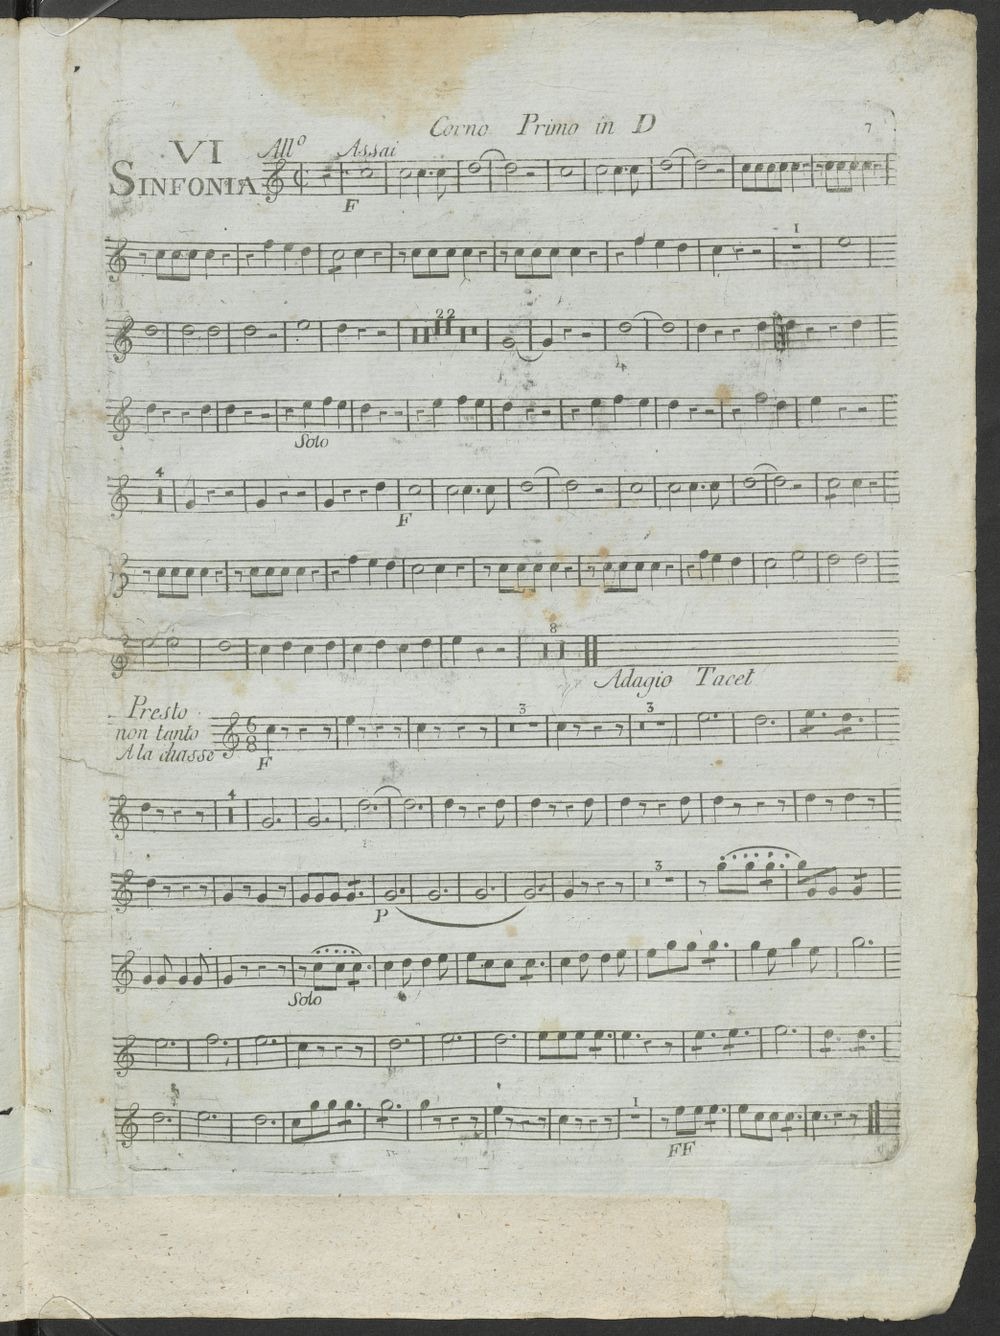 Corno Primo in D
7
VI
SINFONIA
All.º Assai
F
1
22
Solo
4
F
8
Adagio Tacet
Presto
non tanto
A la chasse
6
8
3
3
F
4
3
P
Solo
1
FF